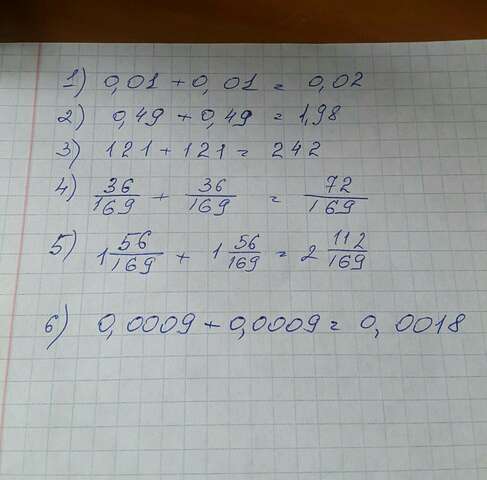 1) 0,01 + 0,01 = 0,02
2) 0,49 + 0,49 = 1,98
3) 121 + 121 = 242
4) 36/169 + 36/169 = 72/169
5) 1 56/169 + 1 56/169 = 2 112/169
6) 0,0009 + 0,0009 = 0,0018